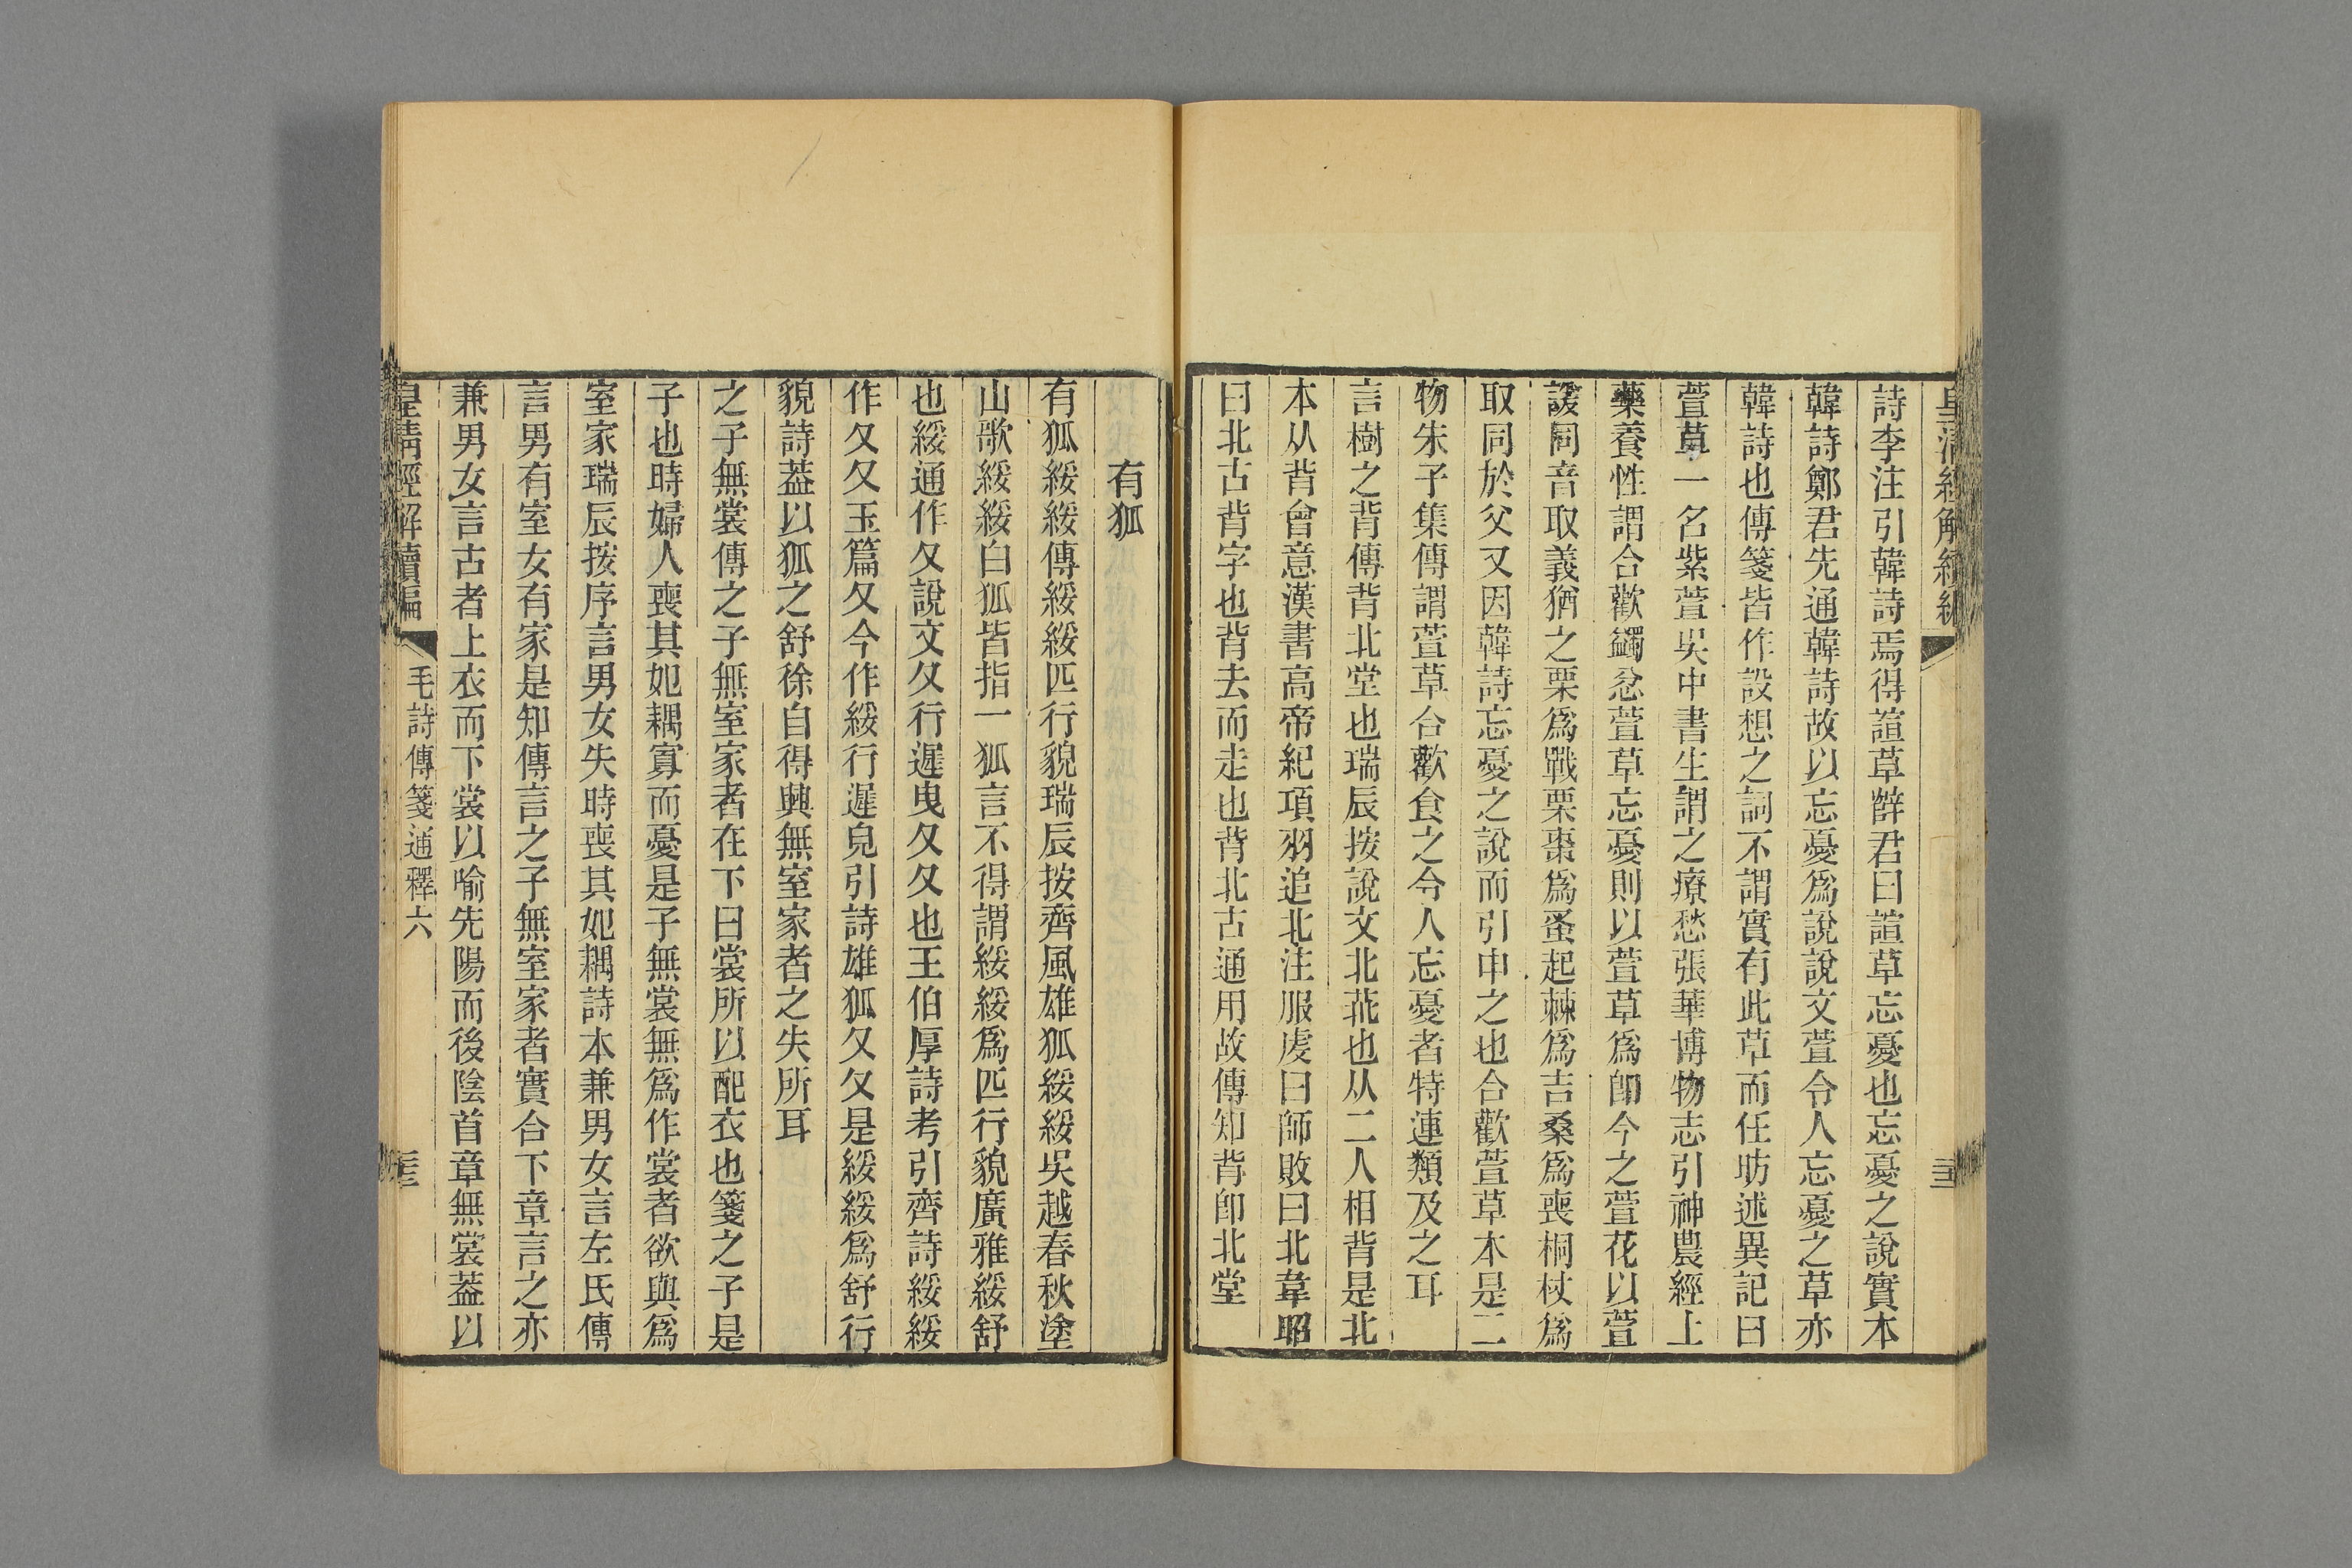 詩李注引韓詩焉得諠草薛君曰諠草忘憂也忘憂之說實本
韓詩鄭君先通韓詩故以忘憂爲說說文萱令人忘憂之草亦
韓詩也傳箋皆作設想之詞不謂實有此草而任昉述異記曰
萱草一名紫萱吳中書生謂之療愁張華博物志引神農經上
藥養性謂合歡蠲忿萱草忘憂則以萱草爲卽今之萱花以萱
諼同音取義猶之栗爲戰栗棗爲蚤起棘爲吉桑爲喪桐杖爲
取同於父又因韓詩忘憂之說而引申之也合歡萱草本是二
物朱子集傳謂萱草合歡食之令人忘憂者特連類及之耳
言樹之背傳背北堂也瑞辰按說文北𦮃也从二人相背是北
本从背會意漢書高帝紀項羽追北注服虔曰師敗曰北韋昭
曰北古背字也背去而走也背北古通用故傳知背卽北堂
有狐
有狐綏綏傳綏綏匹行貌瑞辰按齊風雄狐綏綏吳越春秋塗
山歌綏綏白狐皆指一狐言不得謂綏綏爲匹行貌廣雅綏舒
也綏通作夊說文夊行遲曳夊夊也王伯厚詩考引齊詩綏綏
作夊夊玉篇夊今作綏行遲皃引詩雄狐夊夊是綏綏爲舒行
貌詩葢以狐之舒徐自得興無室家者之失所耳
之子無裳傳之子無室家者在下曰裳所以配衣也箋之子是
子也時婦人喪其妃耦寡而憂是子無裳無爲作裳者欲與爲
室家瑞辰按序言男女失時喪其妃耦詩本兼男女言左氏傳
言男有室女有家是知傳言之子無室家者實合下章言之亦
兼男女言古者上衣而下裳以喻先陽而後陰首章無裳葢以
皇清經解續編
毛詩傳箋通釋六